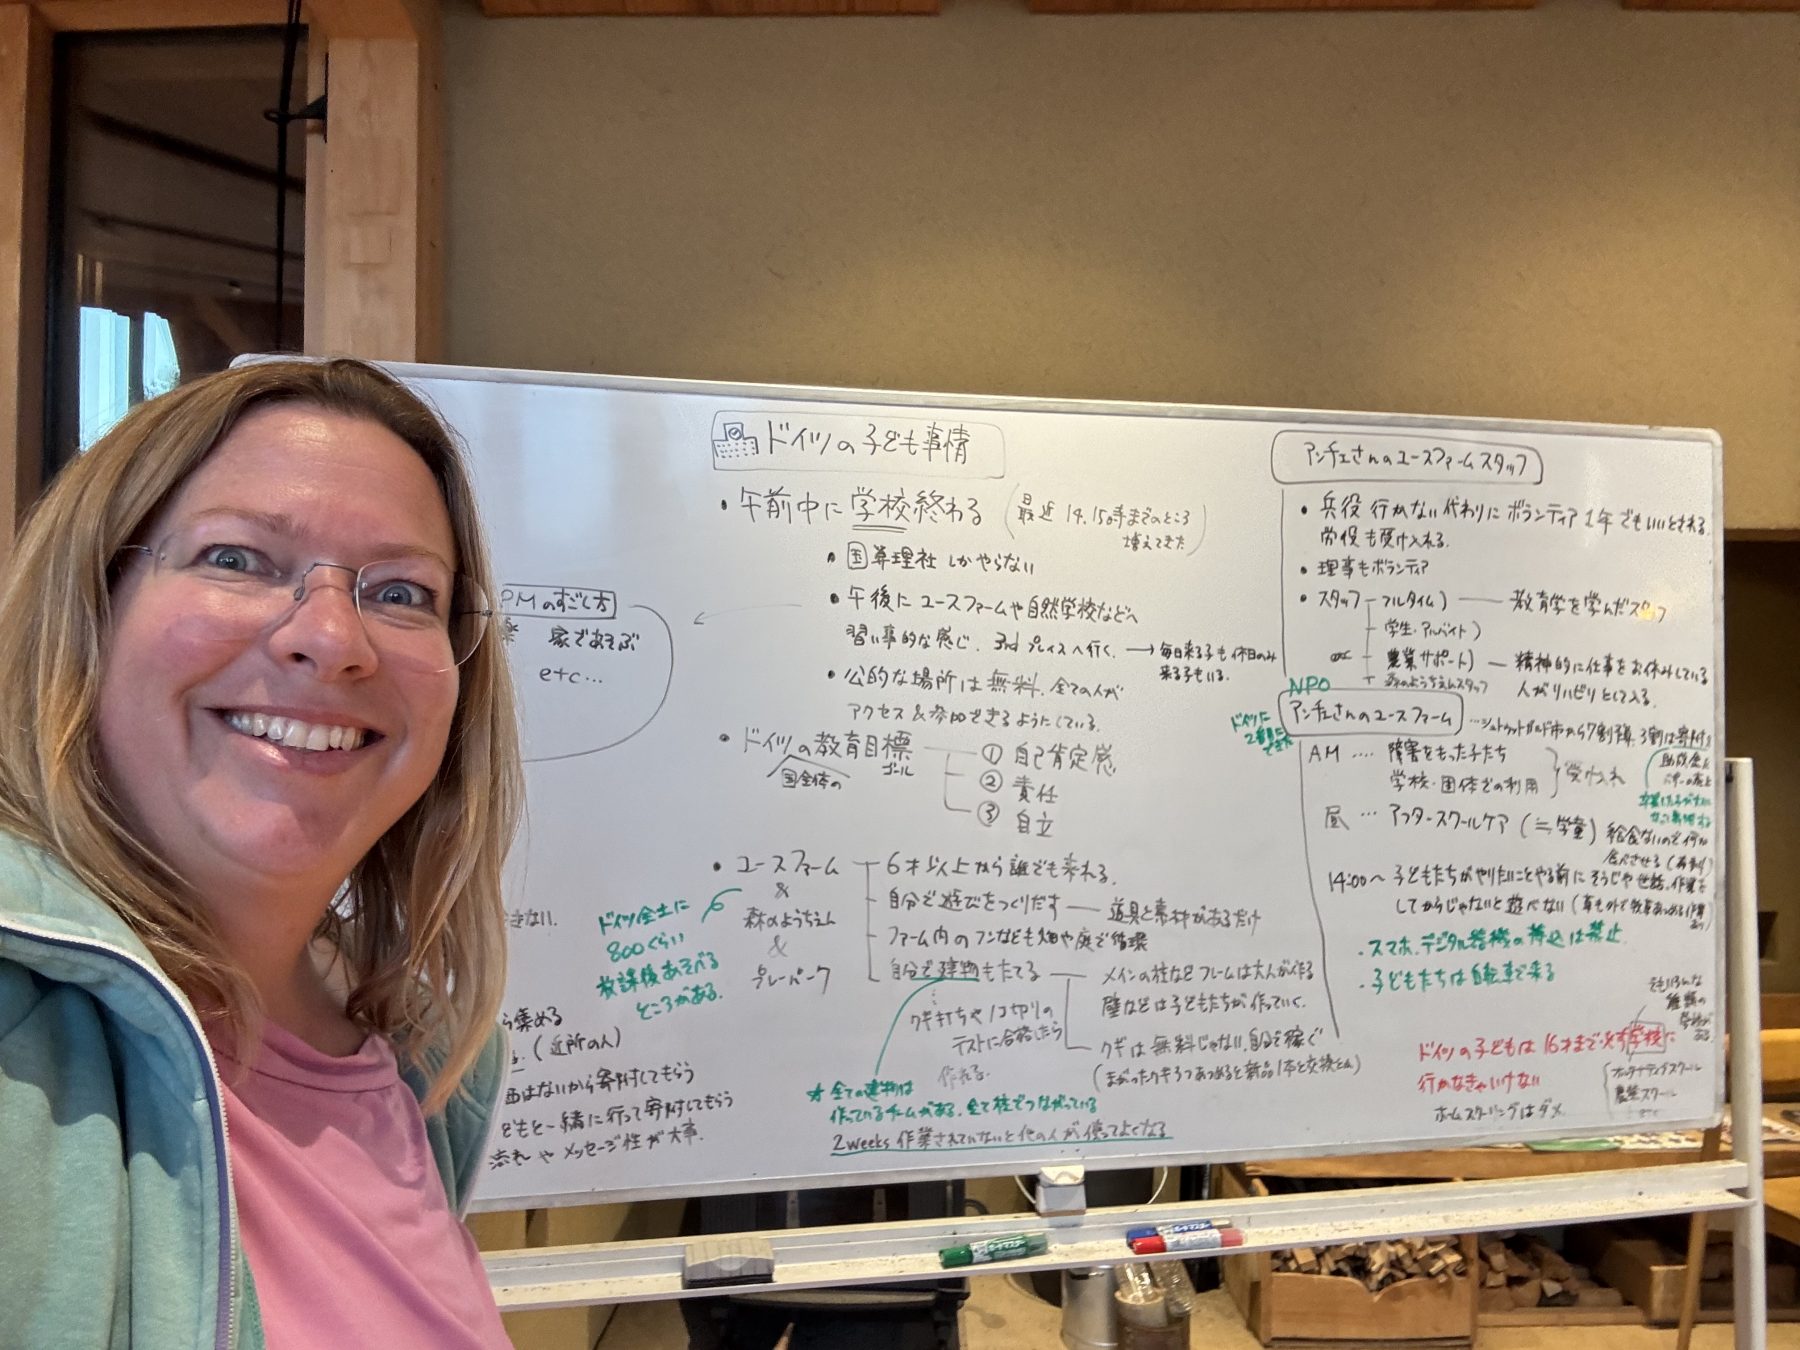 PMのすごし方
家であそぶ
etc...
きない.
ら集める
(近所の人)
はないから寄附してもらう
どもと一緒に行って寄附してもらう
流れやメッセージ性が大事.
ドイツの子ども事情
・午前中に学校終わる
(最近 14,15時までのところ
増えてきた)
国算理社しかやらない
・午後にユースファームや自然学校などへ
習い事的な感じ. 3rdプレイスへ行く. → 毎日来る子も休日のみ
来る子もいる.
・公的な場所は無料. 全ての人が
アクセス&参加できるようにしている.
・ドイツの教育目標
ゴール
国全体の
① 自己肯定感
② 責任
③ 自立
・ユースファーム
&
森のようちえん
&
プレーパーク
ドイツ全土に
800ぐらい
放課後あそべる
ところがある.
6才以上から誰でも来れる.
自分で遊びをつくりだす — 道具と素材があるだけ
ファーム内のフンなども畑や庭で循環
自分で建物もたてる
メインの柱などフレームは大人が作る
壁などは子どもたちが作っていく.
クギ打ちやノコ切りの
テストに合格したら
作れる.
クギは無料じゃない. 自分で稼ぐ
(まがったクギ3つあつめると新品1本と交換とか)
☆全ての建物は
作っているチームがある. 全て柱でつながっている
2weeks 作業されていないと他の人が使ってよくなる
アンチェさんのユースファームスタッフ
・兵役行かない代わりにボランティア1年でもいいとされる.
労役も受け入れる.
・理事もボランティア
・スタッフ フルタイム) — 教育学を学んだスタッフ
学生・アルバイト)
農業サポート) — 精神的に仕事をお休みしている
人がリハビリとして入る.
森のようちえんスタッフ
NPO
ドイツに
2番目に
できた
アンチェさんのユースファーム
…シュトゥットガルト市から7割予算. 3割は寄附
助成金
AM .... 障害をもった子たち
学校・団体での利用
受け入れ
昼 … アフタースクールケア (≒学童)
給食ないので何か
食べさせる
14:00〜 子どもたちがやりたいことやる前にそうじや世話、作業を
してからじゃないと遊べない
・スマホ、デジタル器機の持込は禁止.
・子どもたちは自転車で来る
ドイツの子どもは16才まで必ず学校に
行かなきゃいけない
ホームスクーリングはダメ.
いろんな
種類の
学校が
ある.
オルタナティブスクール
農業スクール
etc